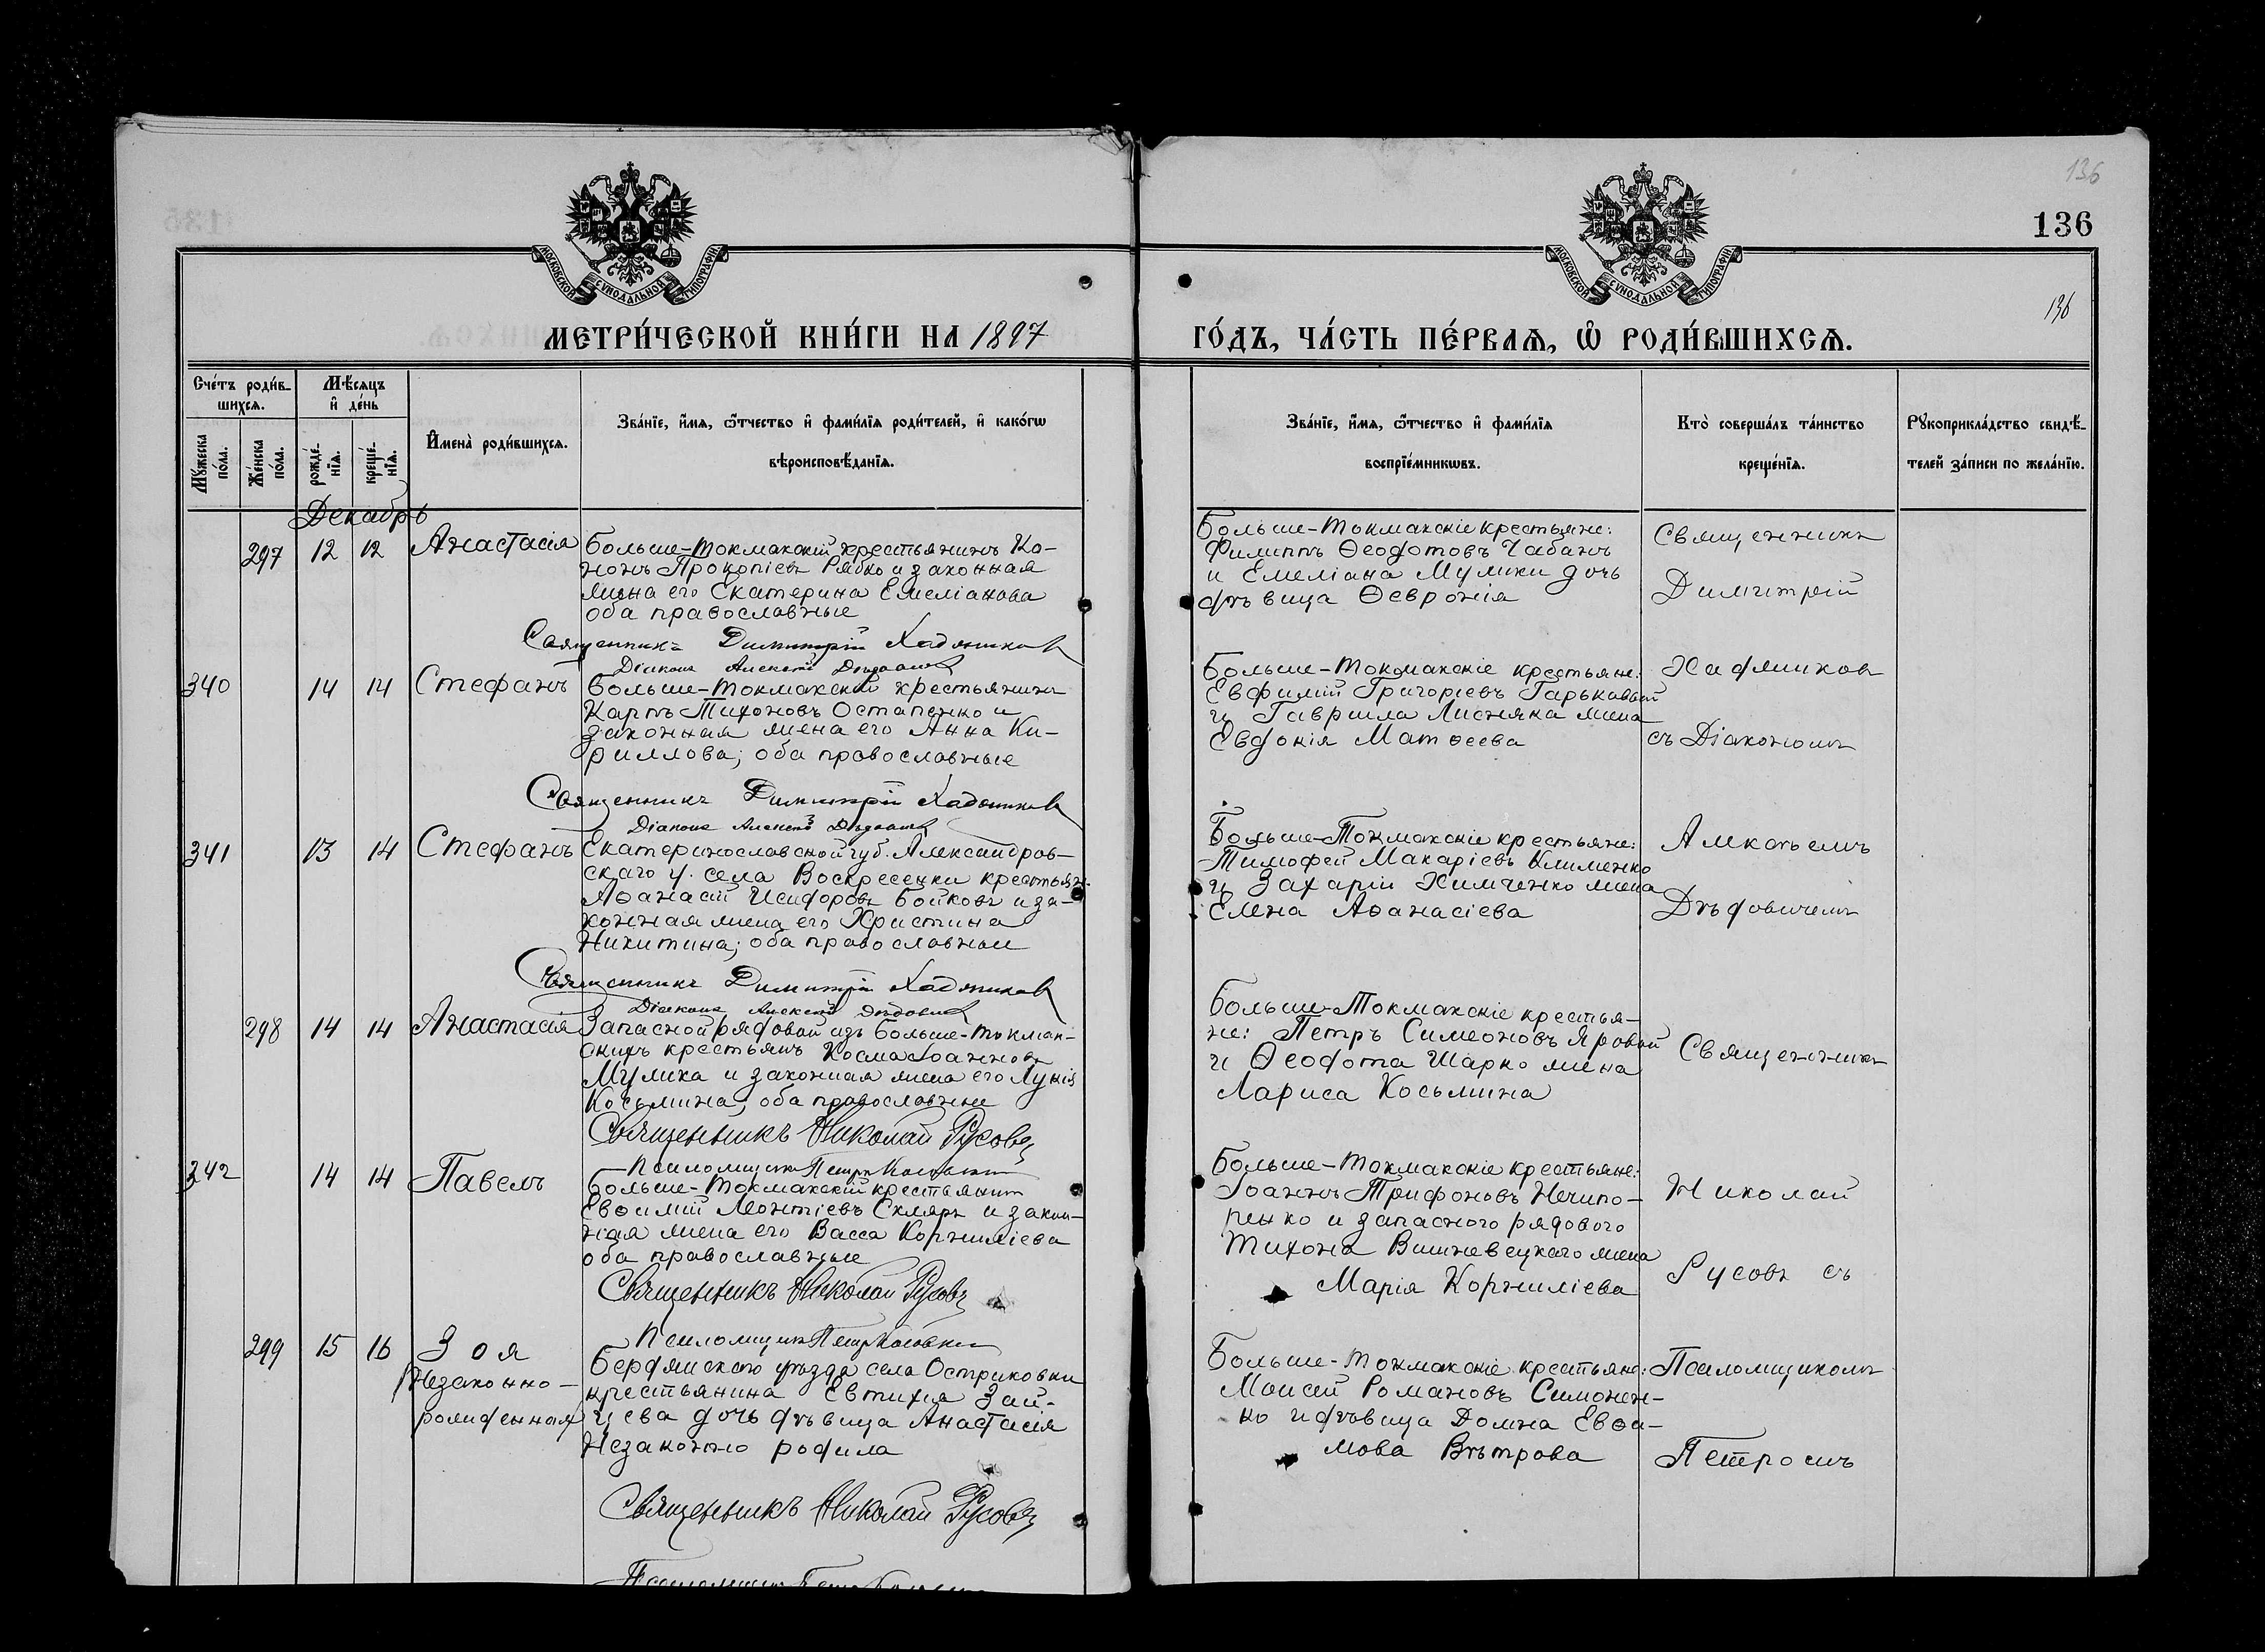 136
136
136
МОСКОВСКОЙ СѴНОДАЛЬНОЙ ТИПОГРАФІИ
МОСКОВСКОЙ СѴНОДАЛЬНОЙ ТИПОГРАФІИ
МЕТРИ́ЧЕСКОЙ КНИ́ГИ НА 1897
ГО́ДЪ, ЧА́СТЬ ПЕ́РВАѦ, Ѡ҆ РОДИ́ВШИХСѦ.
Сче́тъ роди́в-
шихсѧ.
Мꙋ́жеска
по́ла.
Же́нска
по́ла.
Мѣ́сѧцъ
и҆ де́нь
рожде́-
нїѧ.
креще́-
нїѧ.
И҆мена̀ роди́вшихсѧ.
Зва́нїе, и҆́мѧ, ѻ҆́тчество и҆ фами́лїѧ роди́телей, и҆ како́гѡ
вѣроисповѣ́данїѧ.
Зва́нїе, и҆́мѧ, ѻ҆́тчество и҆ фами́лїѧ
воспрїе́мникѡвъ.
Кто̀ соверша́лъ та́инство
креще́нїѧ.
Рꙋкоприкла́дство свидѣ́-
телей за́писи по жела́нїю.
Декабрь
297 12 12 Анастасія
Больше-Токмакскій крестьянинъ Ко-
нонъ Прокопіевъ Рябко и законная
жена его Екатерина Емеліанова
оба православные
Священникъ Димитрій Хаджиковъ
Діаконъ Алексій Дѣдовичъ
Больше-Токмакскіе крестьяне:
Филиппъ Ѳеодотовъ Чабанъ
и Емеліана Мулики дочь
дѣвица Ѳевронія
Священникъ
Димитрій
340 14 14 Стефанъ
Больше-Токмакскій крестьянинъ
Карпъ Тихоновъ Остапенко и
законная жена его Анна Ки-
риллова; оба православные
Священникъ Димитрій Хаджиковъ
Діаконъ Алексій Дѣдовичъ
Больше-Токмакскіе крестьяне:
Евфимій Григоріевъ Гарьковый
и Гавриила Лисняка жена
Евдокія Матѳеева
Хаджиковъ
съ Діакономъ
341 13 14 Стефанъ
Екатеринославской губ. Александров-
скаго у. села Воскресенки крестьян.
Аѳанасій Исидоровъ Бойковъ и за-
конная жена его Христина
Никитина; оба православные
Священникъ Димитрій Хаджиковъ
Діаконъ Алексій Дѣдовичъ
Больше-Токмакскіе крестьяне:
Тимофей Макаріевъ Клименко
и Захарія Химченко жена
Елена Аѳанасіева
Алексѣемъ
Дѣдовичемъ
298 14 14 Анастасія
Запасной рядовой изъ Больше-Токмак-
скихъ крестьянъ Косма Іоанновъ
Мулика и законная жена его Лукія
Косьмина; оба православные
Священникъ Николай Русовъ
Псаломщикъ Петръ
Больше-Токмакскіе крестья-
не: Петръ Симеоновъ Яровой
и Ѳеодота Шарко жена
Лариса Косьмина
Священникъ
342 14 14 Павелъ
Больше-Токмакскій крестьянинъ
Евѳимій Леонтіевъ Скляръ и закон-
ная жена его Васса Корниліева
оба православные
Священникъ Николай Русовъ
Псаломщикъ Петръ
Больше-Токмакскіе крестьяне:
Іоаннъ Трифоновъ Нечипо-
ренко и запасного рядового
Тихона Вишневецкаго жена
Марія Корниліева
Николай
Русовъ съ
299 15 16 Зоя
Незаконно-
рожденная
Бердянскаго уѣзда села Остриковки
крестьянина Евтихія Зай-
цева дочь дѣвица Анастасія
Незаконно родила
Священникъ Николай Русовъ
Псаломщикъ Петръ
Больше-Токмакскіе крестьяне:
Моисей Романовъ Симонен-
ко и дѣвица Домна Евѳи-
мова Вѣтрова
Псаломщикомъ
Петромъ